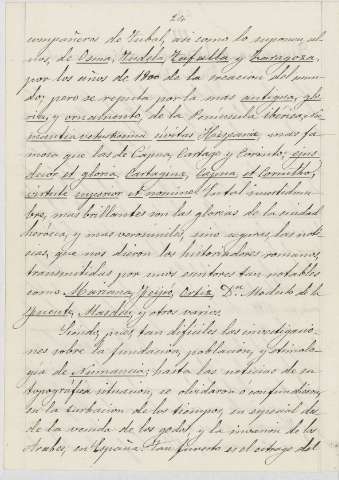 24
compañeros de Tubal, así como lo suponen al
nos, de Osma, Tudela, Tafalla y Zaragoza,
por los años de 1800 de la creacion del mun
do; pero se reputa por la mas antigua, glo
ria, y ornamento, de la Peninsula Ibérica, Nu
mantia vetustissima civitas Hispaniæ, mas fa
mosa que las de Capua, Cartago y Corinto; ejus
decor et gloria, Cartagine, Capua et Corintho,
virtute
et nomine. En tal incertidum
bre, mas brillantes son las glorias de la ciudad
heróica, y mas verosimiles, sino seguras las noti
cias, que nos dieron los historiadores romanos,
transmitidas por unos escritores tan notables
como Mariana, Feijoó, Ortiz, Dn. Modesto de la
Fuente, Masdeu, y otros varios.
Siendo, pues, tan difíciles las investigacio
nes sobre la fundacion, poblacion, y etimolo
gia de Numancia; hasta las noticias de su
topográfica situacion, se olvidaron ó confundieron,
en la turbacion de los tiempos, en especial des
de la venida de los godos, y la invasion de los
Arabes, en España. Tan funesto es el estrago del